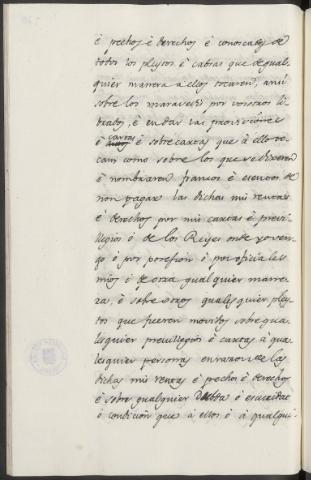 é pechos é derechos é conoscades de
todos los pleytos é cabsas que de qual-
quier manera á ellos tocaren, ansi
sobre los maravedis por vosotros li-
brados, é en dar las provisiones
é cartas é sobre cartas que á ello to-
can como sobre los que se dixeren
é nombraren francos é esentos de
non pagar las dichas mis rentas
é derechos por mis cartas é previ-
llegios ó de los Reyes onde yo ven-
go ó por posesion ó por oficiales
mios ó de otra qualquier mane-
ra, é sobre otros qualesquier pley-
tos que fueren movidos sobre qua-
lesquier previllegios é cartas á qua-
lesquier personas en razon de las
dichas mis rentas é pechos é derechos
é sobre qualquier debda é escuridat
ó condicion que á ellos ó á qualqui-